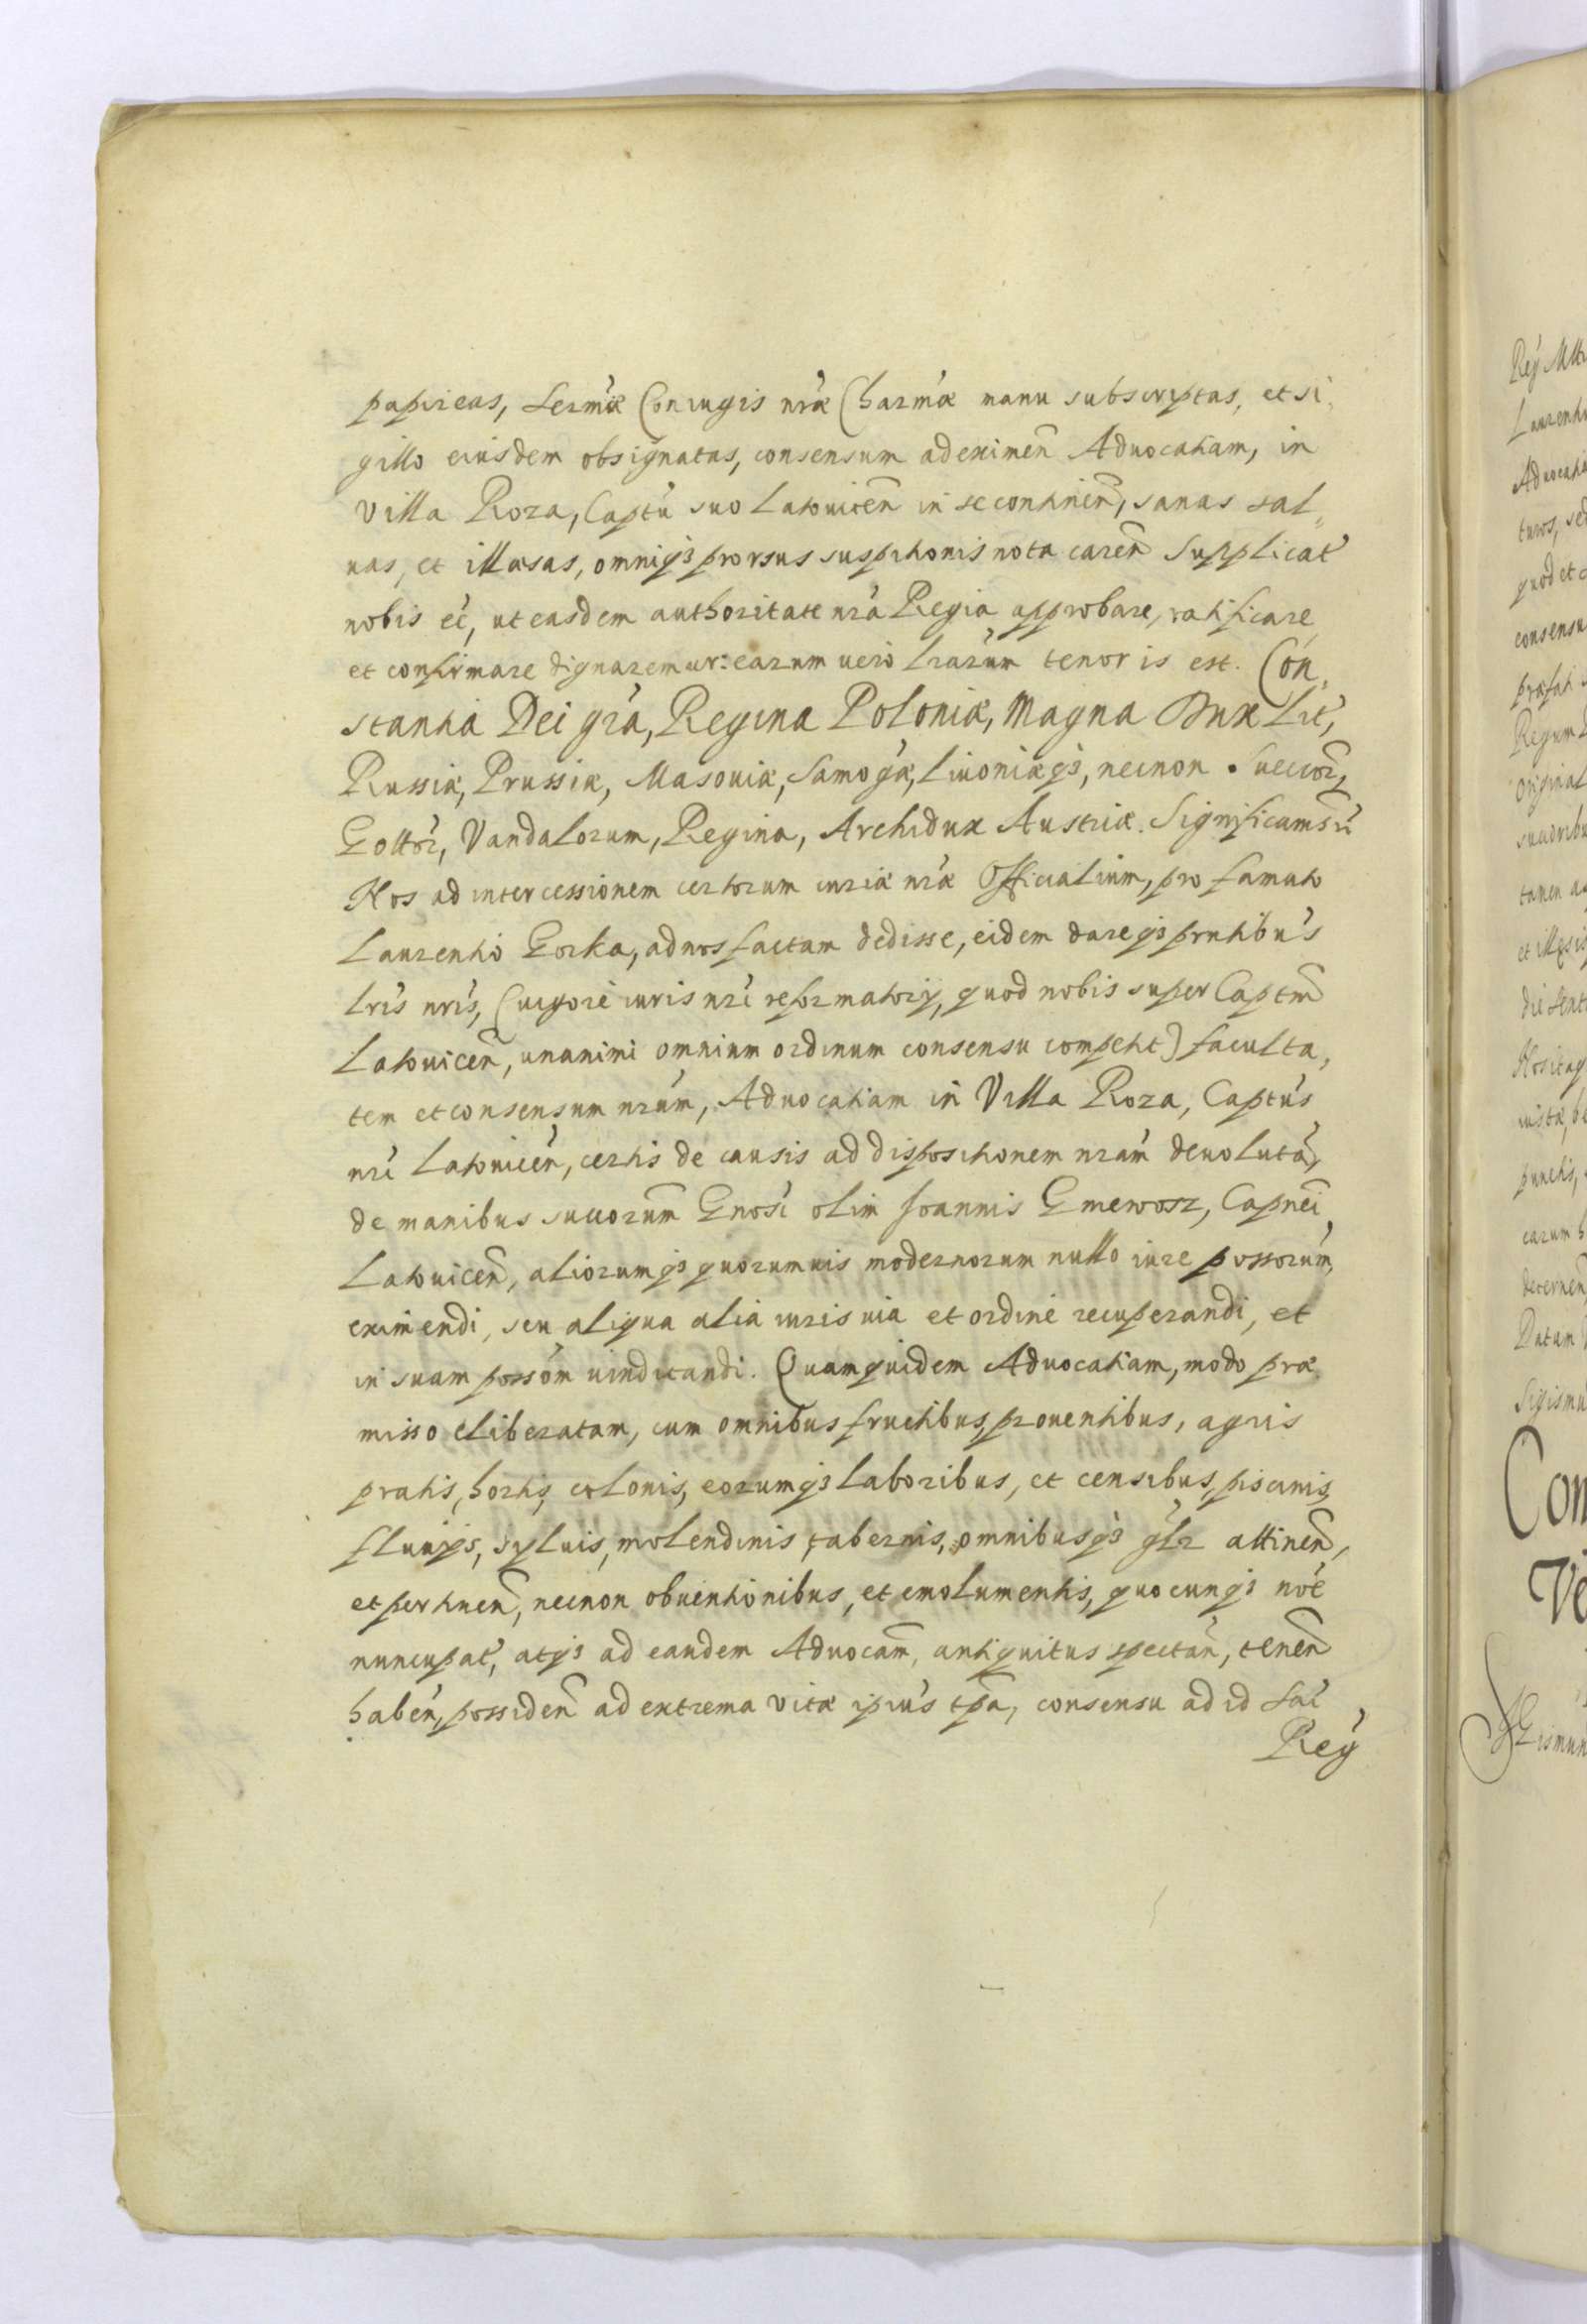 papireas, Serm̃æ Coniugis nr̃æ Charm̃æ manu subscriptas, et si,
gillo eiusdem obsignatas, consensum ad eximen̄ Aduocatiam, in
Villa Roza, Captũ suo Latouicen̄ in se continen̄, sanas sal„
uas, et illæsas, omniq3 prorsus suspitionis nota caren̄ Supplicat̃
nobis ẽe, ut easdem authoritate nr̃a Regia approbare, ratificare
et confirmare dignaremur: earum uero lr̃arum tenor is est. Con,
stantia Dei gr̃a, Regina Poloniæ, Magna Dux Lit̃,
Russiæ, Prussiæ, Masouiæ, Samog̃æ, Liuoniæq3, necnon Suecor̃,
Gottor̃, Vandalorum, Regina, Archidux Austriæ. Significam̃s ũ
Nos ad intercessionem certorum curiæ nr̃æ Officialium, pro famato
Laurentio Gorka, ad nos factam dedisse, eidem dareq3 pr̃ntibus
lr̃is nr̃is, (uigore iuris nr̃i reformatorij, quod nobis super Captm̃
Latouicen̄, unanimi omnium ordinum consensu competit) faculta,
tem et consensum nr̃um, Aduocatiam in Villa Roza, Captũs
nr̃i Latouicen̄, certis de causis ad dispositionem nr̃am deuolutã,
de manibus succorum̃ Gnosĩ olim Joannis Gmewosz, Capneĩ
Latouicen̄, aliorumq3 quorumuis modernorum nullo iure possorum̃,
eximendi, seu aliqua alia iuris uia et ordine recuperandi, et
in suam possõm uindicandi. Quamquidem Aduocatiam, modo præ
misso eliberatam, cum omnibus fructibus, prouentibus, agris
pratis, hortis, colonis, eorumq3 laboribus, et censibus, piscinis,
fluuijs, syluis, molendinis, tabernis, omnibusq3 gl̃r attinen̄,
et pertinen̄, necnon obuentionibus, et emolumentis, quocunq3 nõe
nuncupat̃, atq3 ad eandem Aduocam̃, antiquitus spectan̄, tenen̄
haben̄, possiden̄ ad extrema vitæ ipius̃ tp̃a, consensu ad id Sac̃
Reg̃